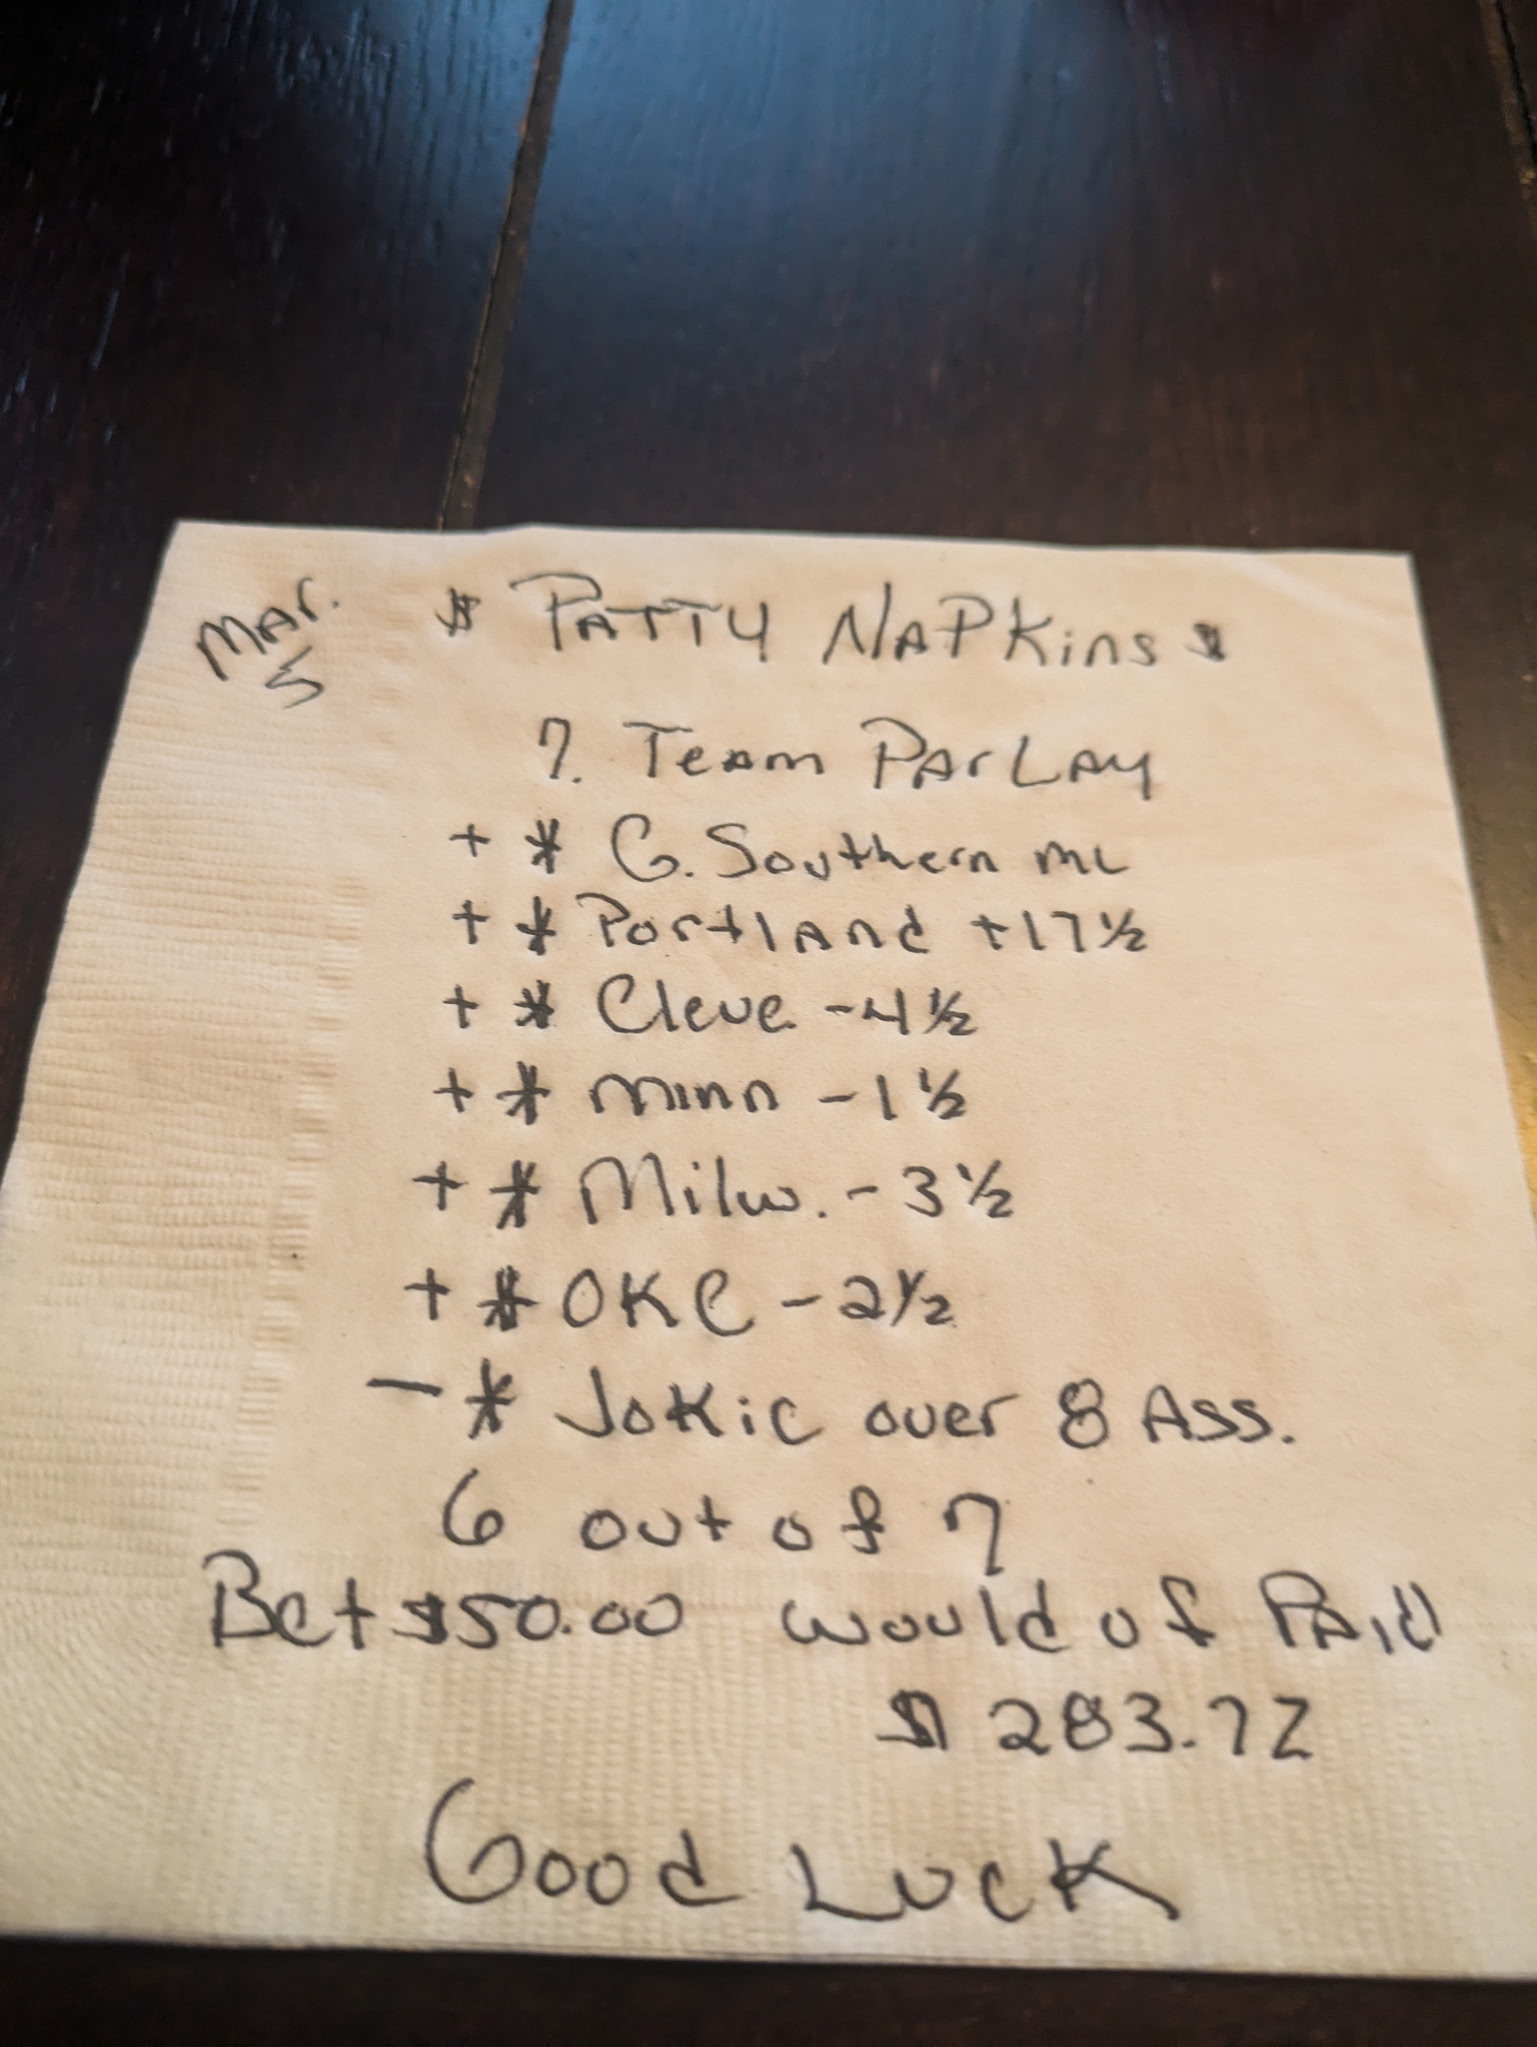 Mar. 5
$ PATTY NAPKins $
7. Team ParLAy
+ * G. Southern ML
+ * Portland +17 ½
+ * Cleve. -4 ½
+ * Minn -1 ½
+ * Milw. -3 ½
+ * OKC -2 ½
- * JoKic over 8 Ass.
6 out of 7
Bet $50.00 would of PAid
$ 283.72
Good Luck